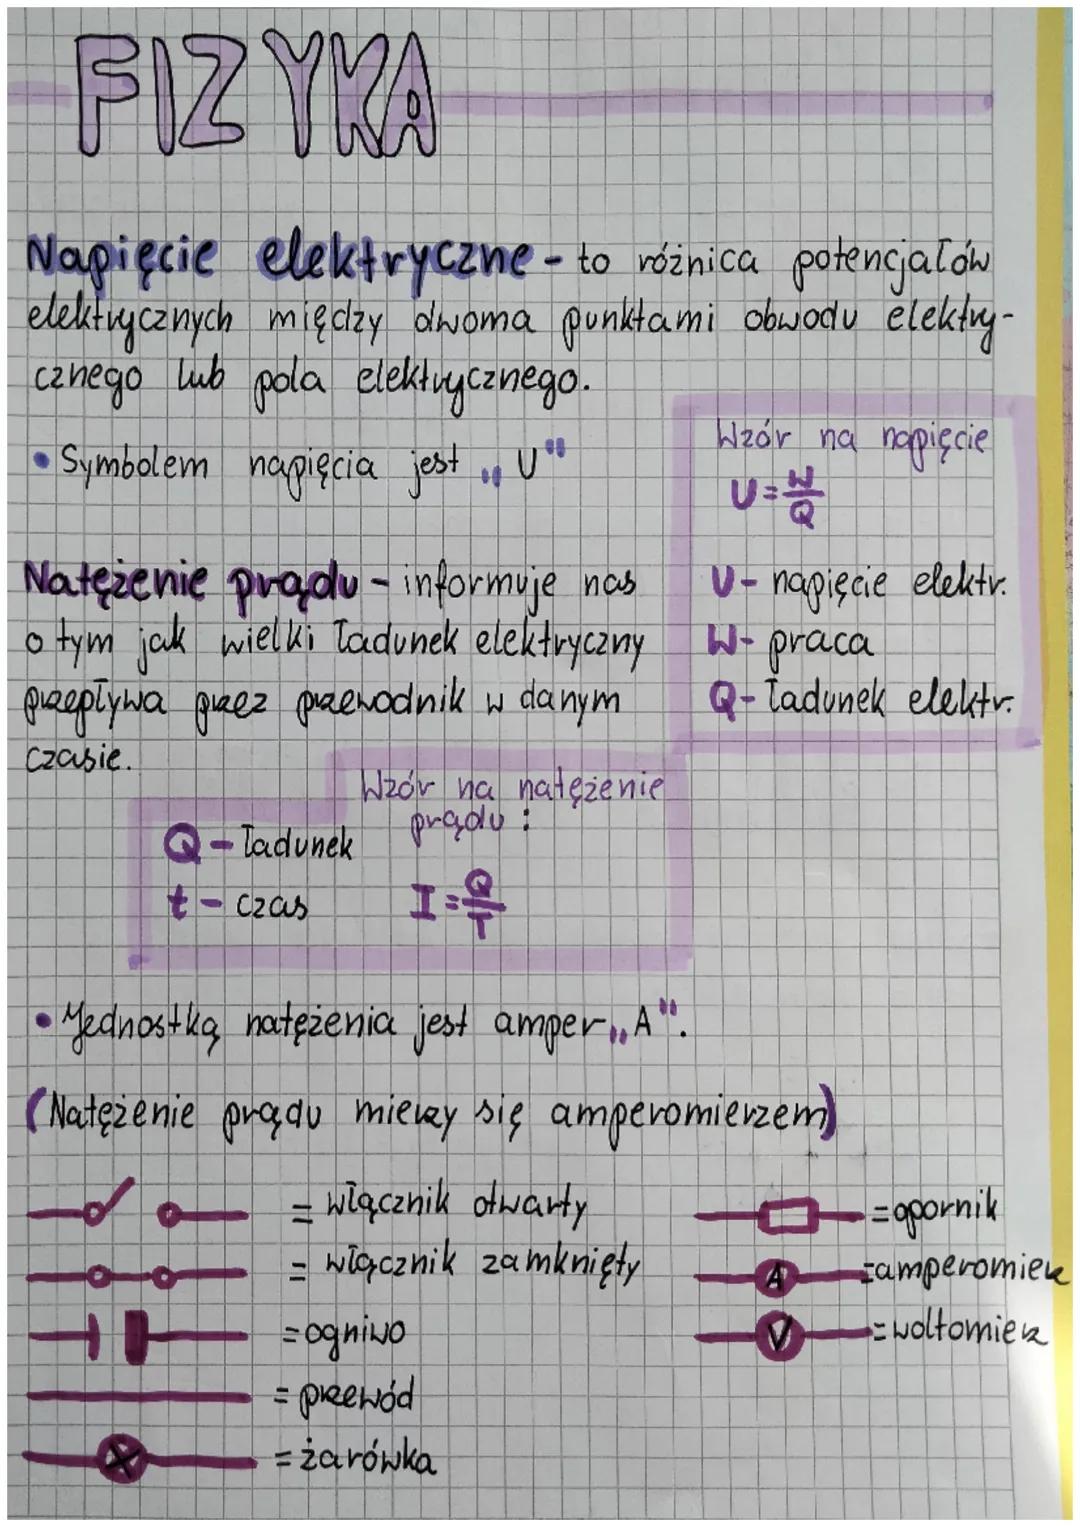 FIZYKA
Napięcie elektryczne - to różnica potencjałów
elektrycznych między dwoma punktami obwodu elektry-
cznego lub pola elektrycznego.
• Symbolem napięcia jest „U"
Wzór na napięcie
U = W/Q
U - napięcie elektr.
W - praca
Q - ładunek elektr.
Natężenie prądu - informuje nas
o tym jak wielki ładunek elektryczny
przepływa przez przewodnik w danym
czasie.
Wzór na natężenie
prądu :
Q - ładunek
t - czas
I = Q/T
• Jednostką natężenia jest amper „A".
(Natężenie prądu mierzy się amperomierzem)
= włącznik otwarty
= włącznik zamknięty
= ogniwo
= przewód
= żarówka
= opornik
A = amperomierz
V = woltomierz